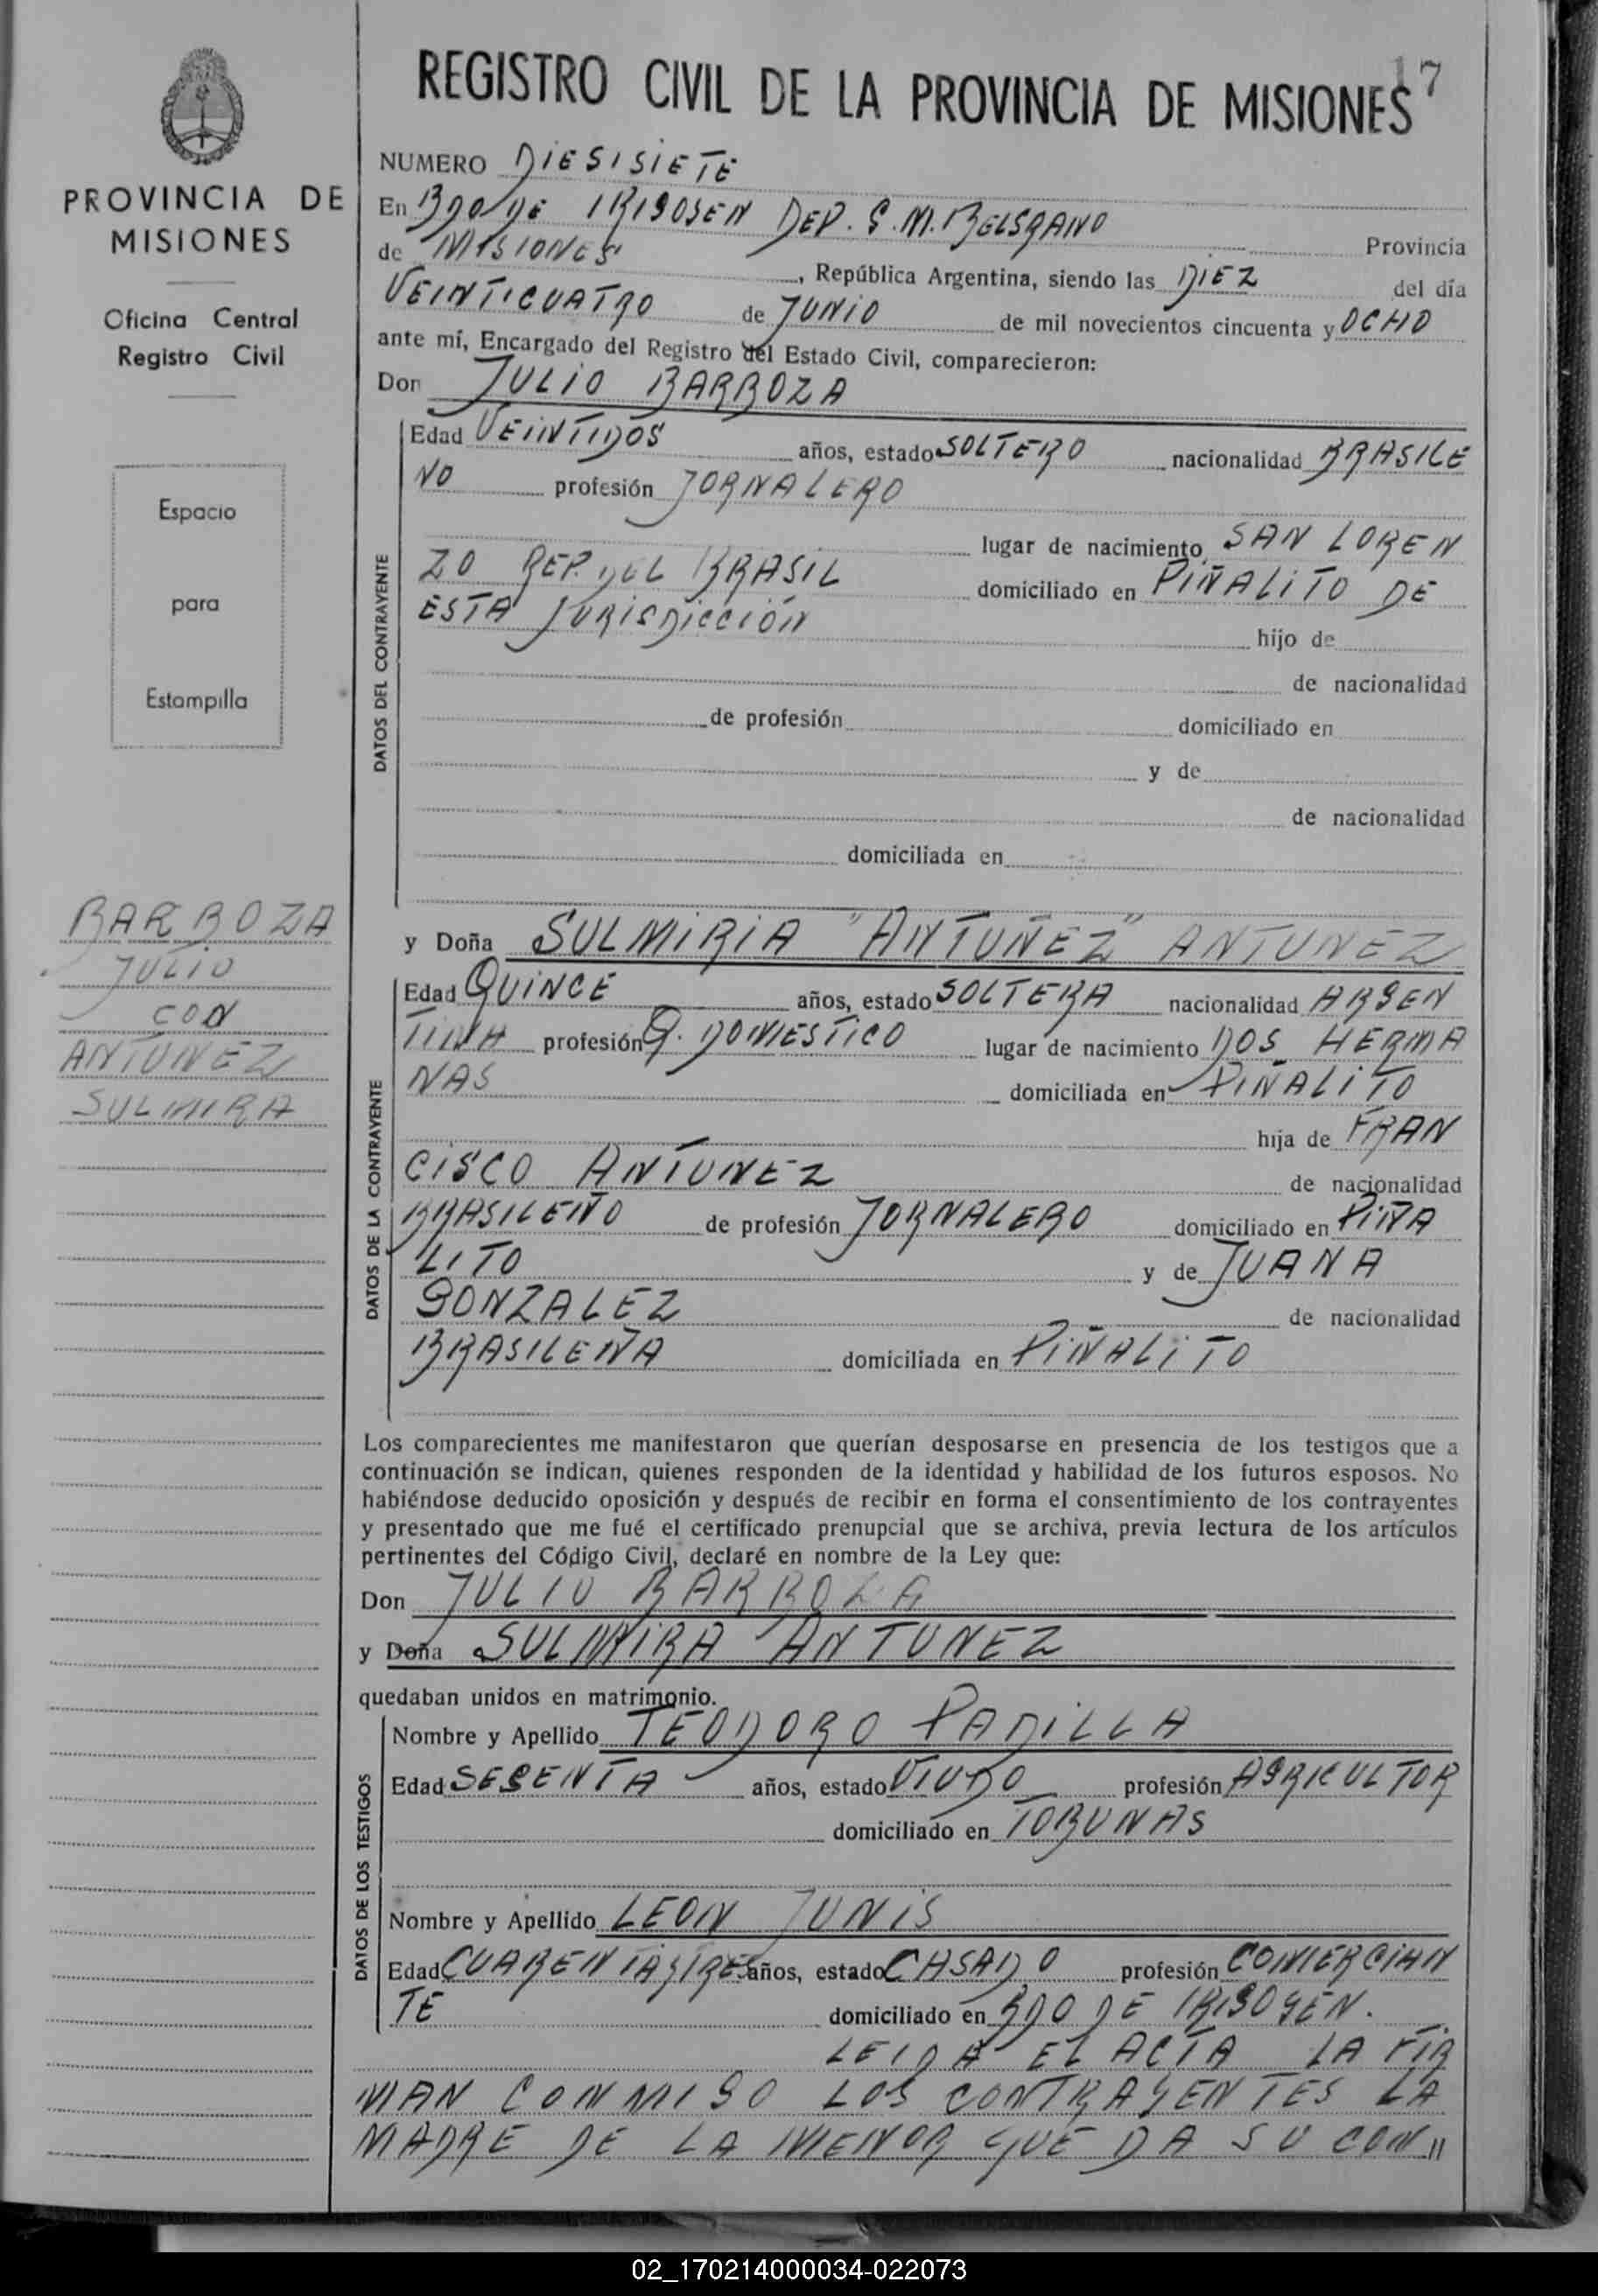 17
REGISTRO CIVIL DE LA PROVINCIA DE MISIONES
PROVINCIA DE
MISIONES
Oficina Central
Registro Civil
Espacio
para
Estampilla
BARBOZA
JULIO
CON
ANTUNEZ
SULMIRA
NUMERO DIESISIETE
En BDO DE IRIGOSEN DEP. G. M. BELGRANO Provincia
de MISIONES, República Argentina, siendo las DIEZ del día
VEINTICUATRO de JUNIO de mil novecientos cincuenta y OCHO
ante mí, Encargado del Registro del Estado Civil, comparecieron:
Don JULIO BARBOZA
DATOS DEL CONTRAYENTE
Edad VEINTIDOS años, estado SOLTERO nacionalidad BRASILE
NO profesión JORNALERO
lugar de nacimiento SAN LOREN
ZO REP. DEL BRASIL domiciliado en PIÑALITO DE
ESTA JURISDICCIÓN hijo de
de nacionalidad
de profesión domiciliado en
y de
de nacionalidad
domiciliada en
y Doña SULMIRIA "ANTUÑEZ" ANTUNEZ
DATOS DE LA CONTRAYENTE
Edad QUINCE años, estado SOLTERA nacionalidad ARGEN
TINA profesión Q. DOMESTICO lugar de nacimiento DOS HERMA
NAS domiciliada en PIÑALITO
hija de FRAN
CISCO ANTUNEZ de nacionalidad
BRASILEÑO de profesión JORNALERO domiciliado en PIÑA
LITO y de JUANA
GONZALEZ de nacionalidad
BRASILEÑA domiciliada en PIÑALITO
Los comparecientes me manifestaron que querían desposarse en presencia de los testigos que a
continuación se indican, quienes responden de la identidad y habilidad de los futuros esposos. No
habiéndose deducido oposición y después de recibir en forma el consentimiento de los contrayentes
y presentado que me fué el certificado prenupcial que se archiva, previa lectura de los artículos
pertinentes del Código Civil, declaré en nombre de la Ley que:
Don JULIO BARBOZA
y Doña SULMIRA ANTUNEZ
quedaban unidos en matrimonio.
DATOS DE LOS TESTIGOS
Nombre y Apellido TEODORO PADILLA
Edad SESENTA años, estado VIUDO profesión AGRICULTOR
domiciliado en TOBUNAS
Nombre y Apellido LEON JUNIS
Edad CUARENTAYTRES años, estado CASADO profesión COMERCIAN
TE domiciliado en BDO DE IRIGOYEN.
LEIDA EL ACTA LA FIR
MAN CONMIGO LOS CONTRAYENTES LA
MADRE DE LA MENOR QUE DA SU CON"
02_170214000034-022073